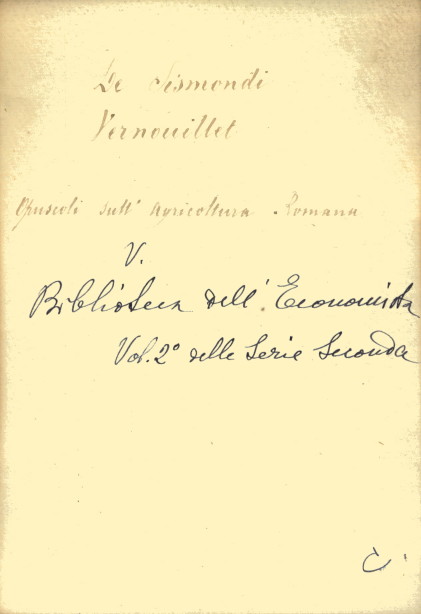 De Sismondi
Vernouillet
Opuscoli sull' Agricoltura Romana
V.
Biblioteca dell' Economista
Vol. 2° delle Serie Seconda
C.